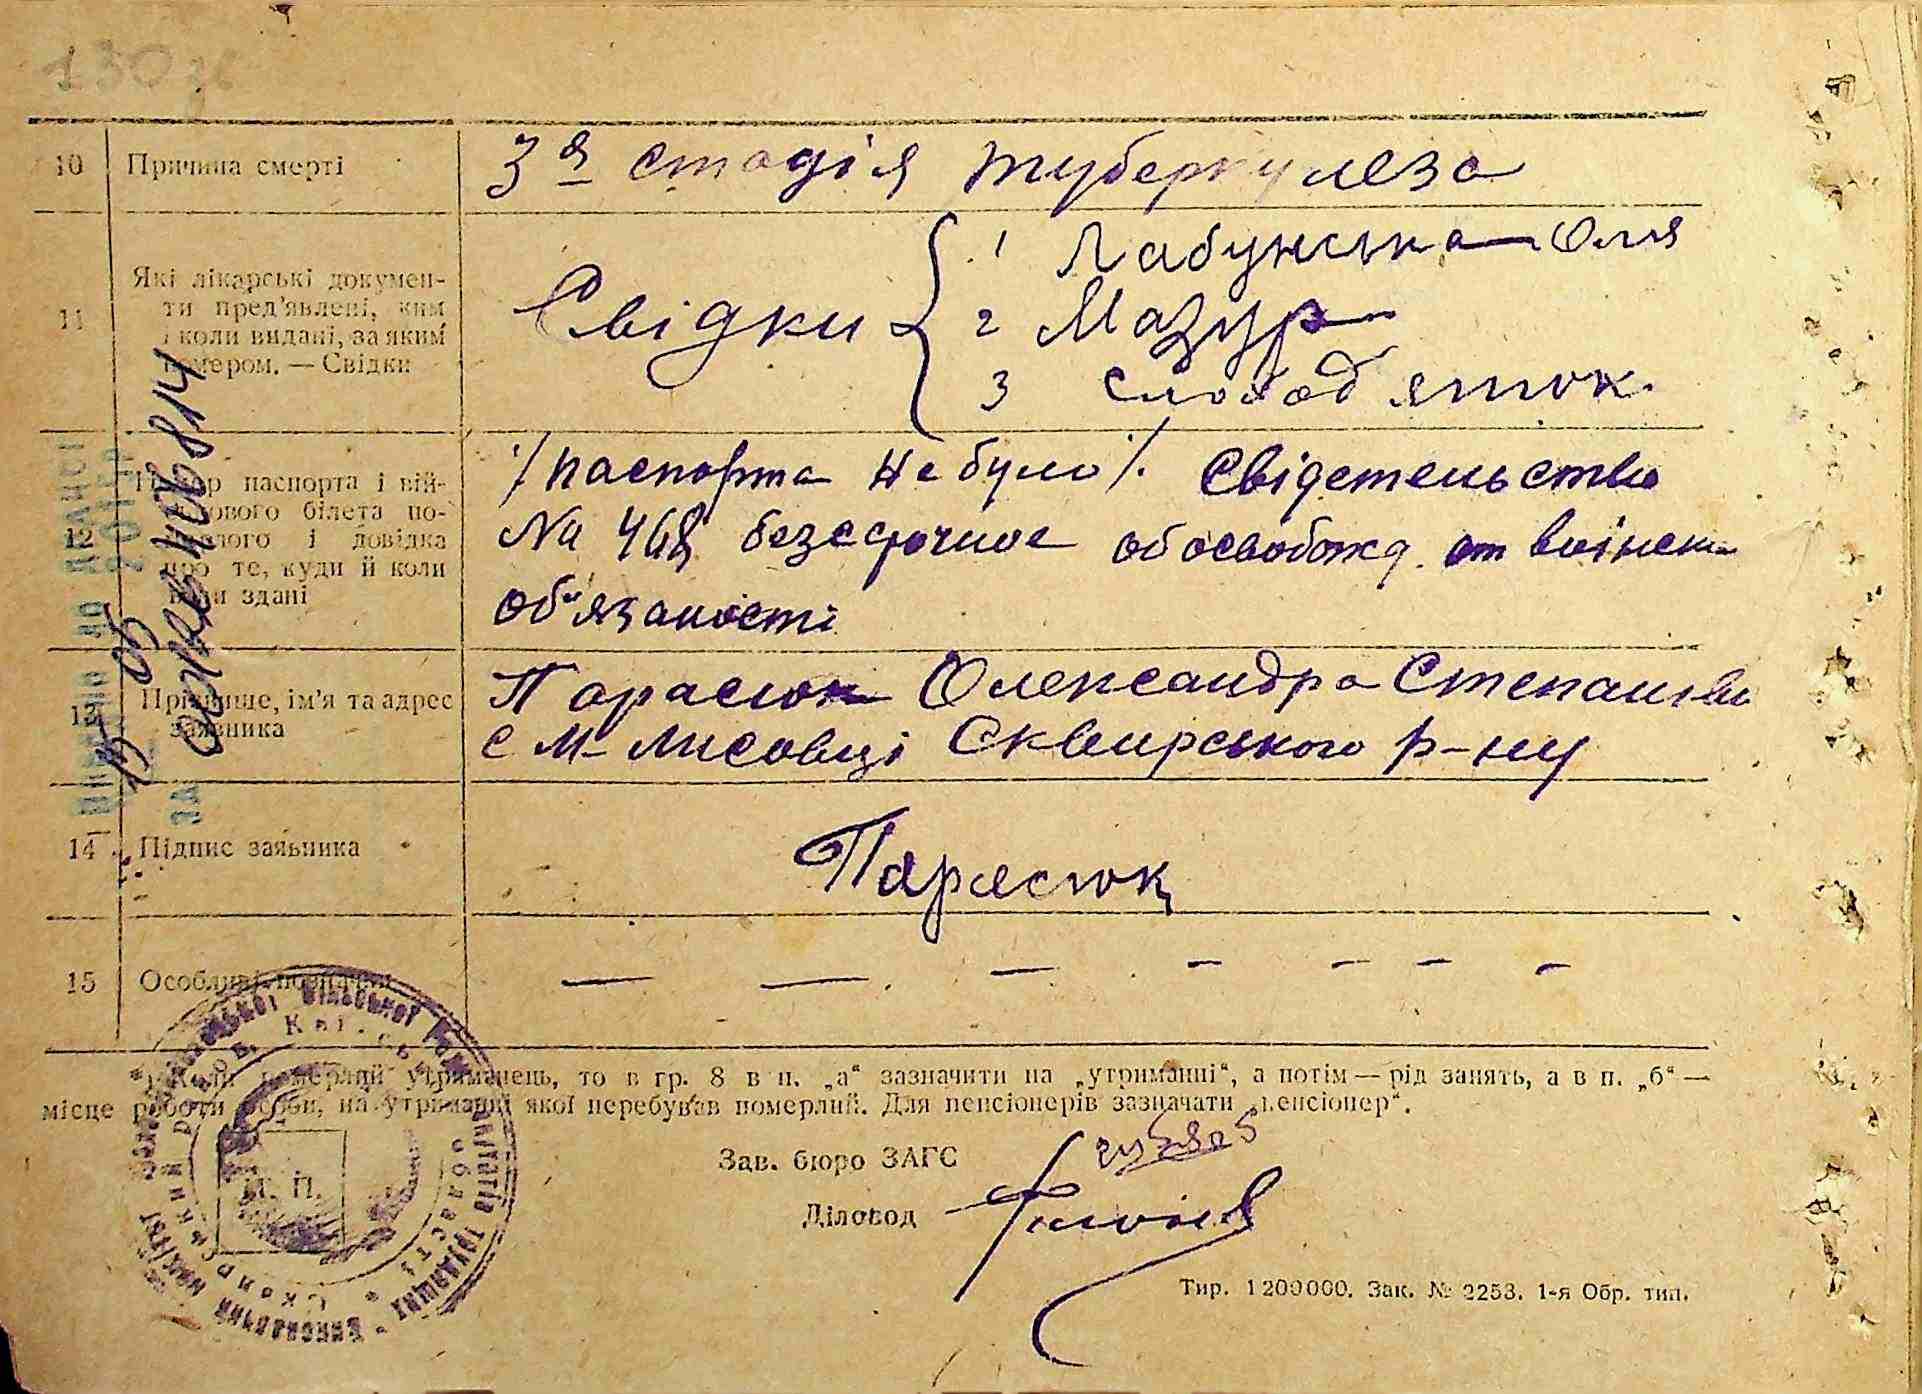 130
10 Причина смерті 3 а стадія туберкулеза
11 Які лікарські докумен-
ти пред'явлені, ким
і коли видані, за яким
номером. — Свідки
Свідки
1 Лабунська Оля
2 Мазур
3 Слободянюк
12 Номер паспорта і вій-
ськового білета по-
мерлого і довідка
про те, куди й коли
вони здані
/Паспорта не було/. Свідетельство
№ 468 безсрочное об освобожд. от воінск
об'язаності
13 Прізвище, ім'я та адрес
заявника
Парасюк Олександра Степанівн
с М-Лисовці Сквирського р-ну
14 Підпис заявника Парасюк
15 Особливі позначки — — — - - - -
*) Коли померлий утриманець, то в гр. 8 в п. „а“ зазначити на „утриманні“, а потім — рід занять, а в п. „б“ —
місце роботи особи, на утриманні якої перебував померлий. Для пенсіонерів зазначати „пенсіонер“.
Зав. бюро ЗАГС
Діловод
М. П.
Тир. 1200000. Зак. № 2253. 1-я Обр. тип.